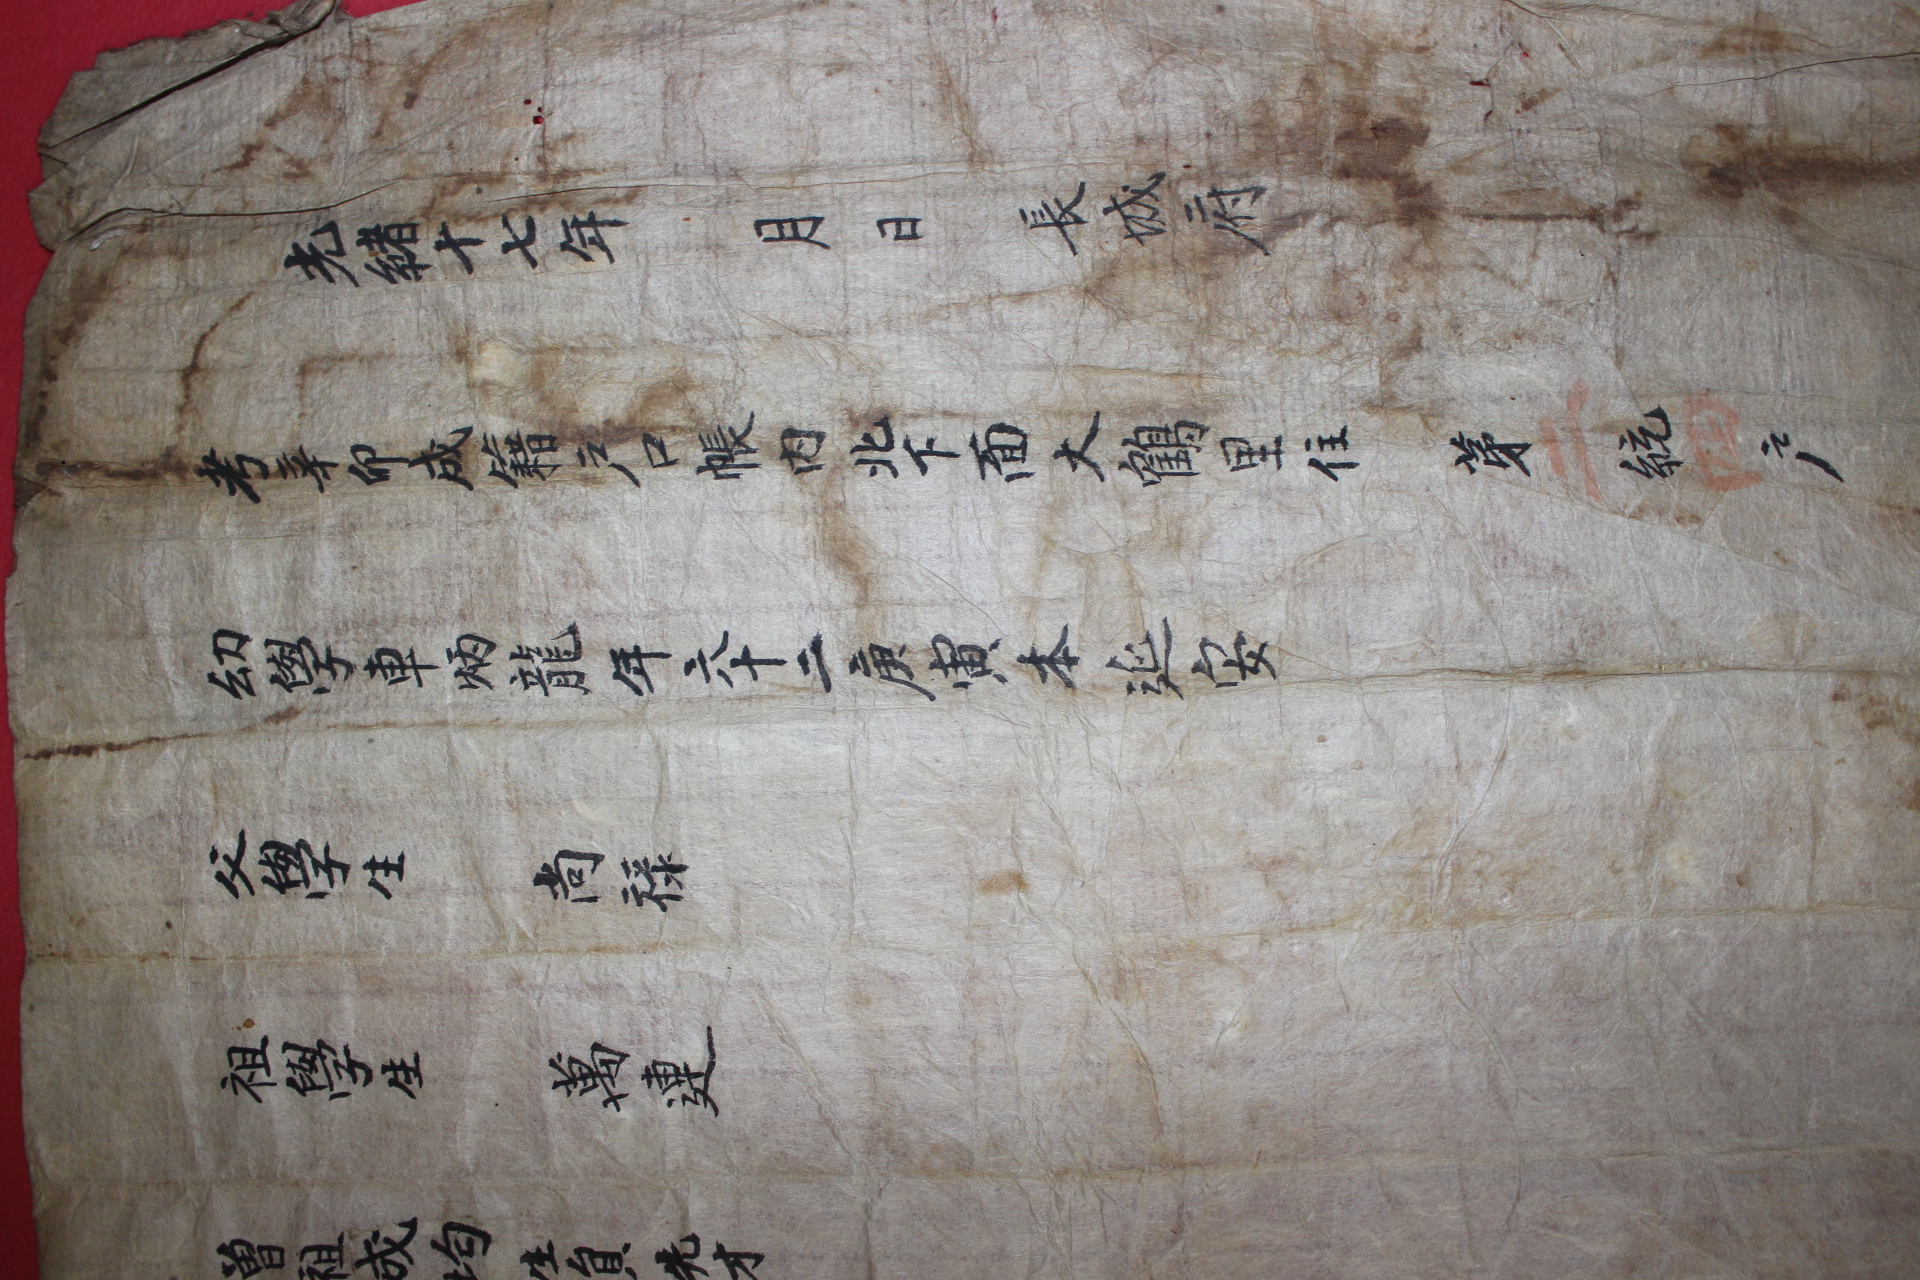 光緖十七年 月 日 長城府
考辛卯成籍戶口帳內北下面大鶴里住 第二統四戶
幼學車炳龍年六十二庚寅本延安
父學生 尙祿
祖學生 萬連
曾祖成均生員先才